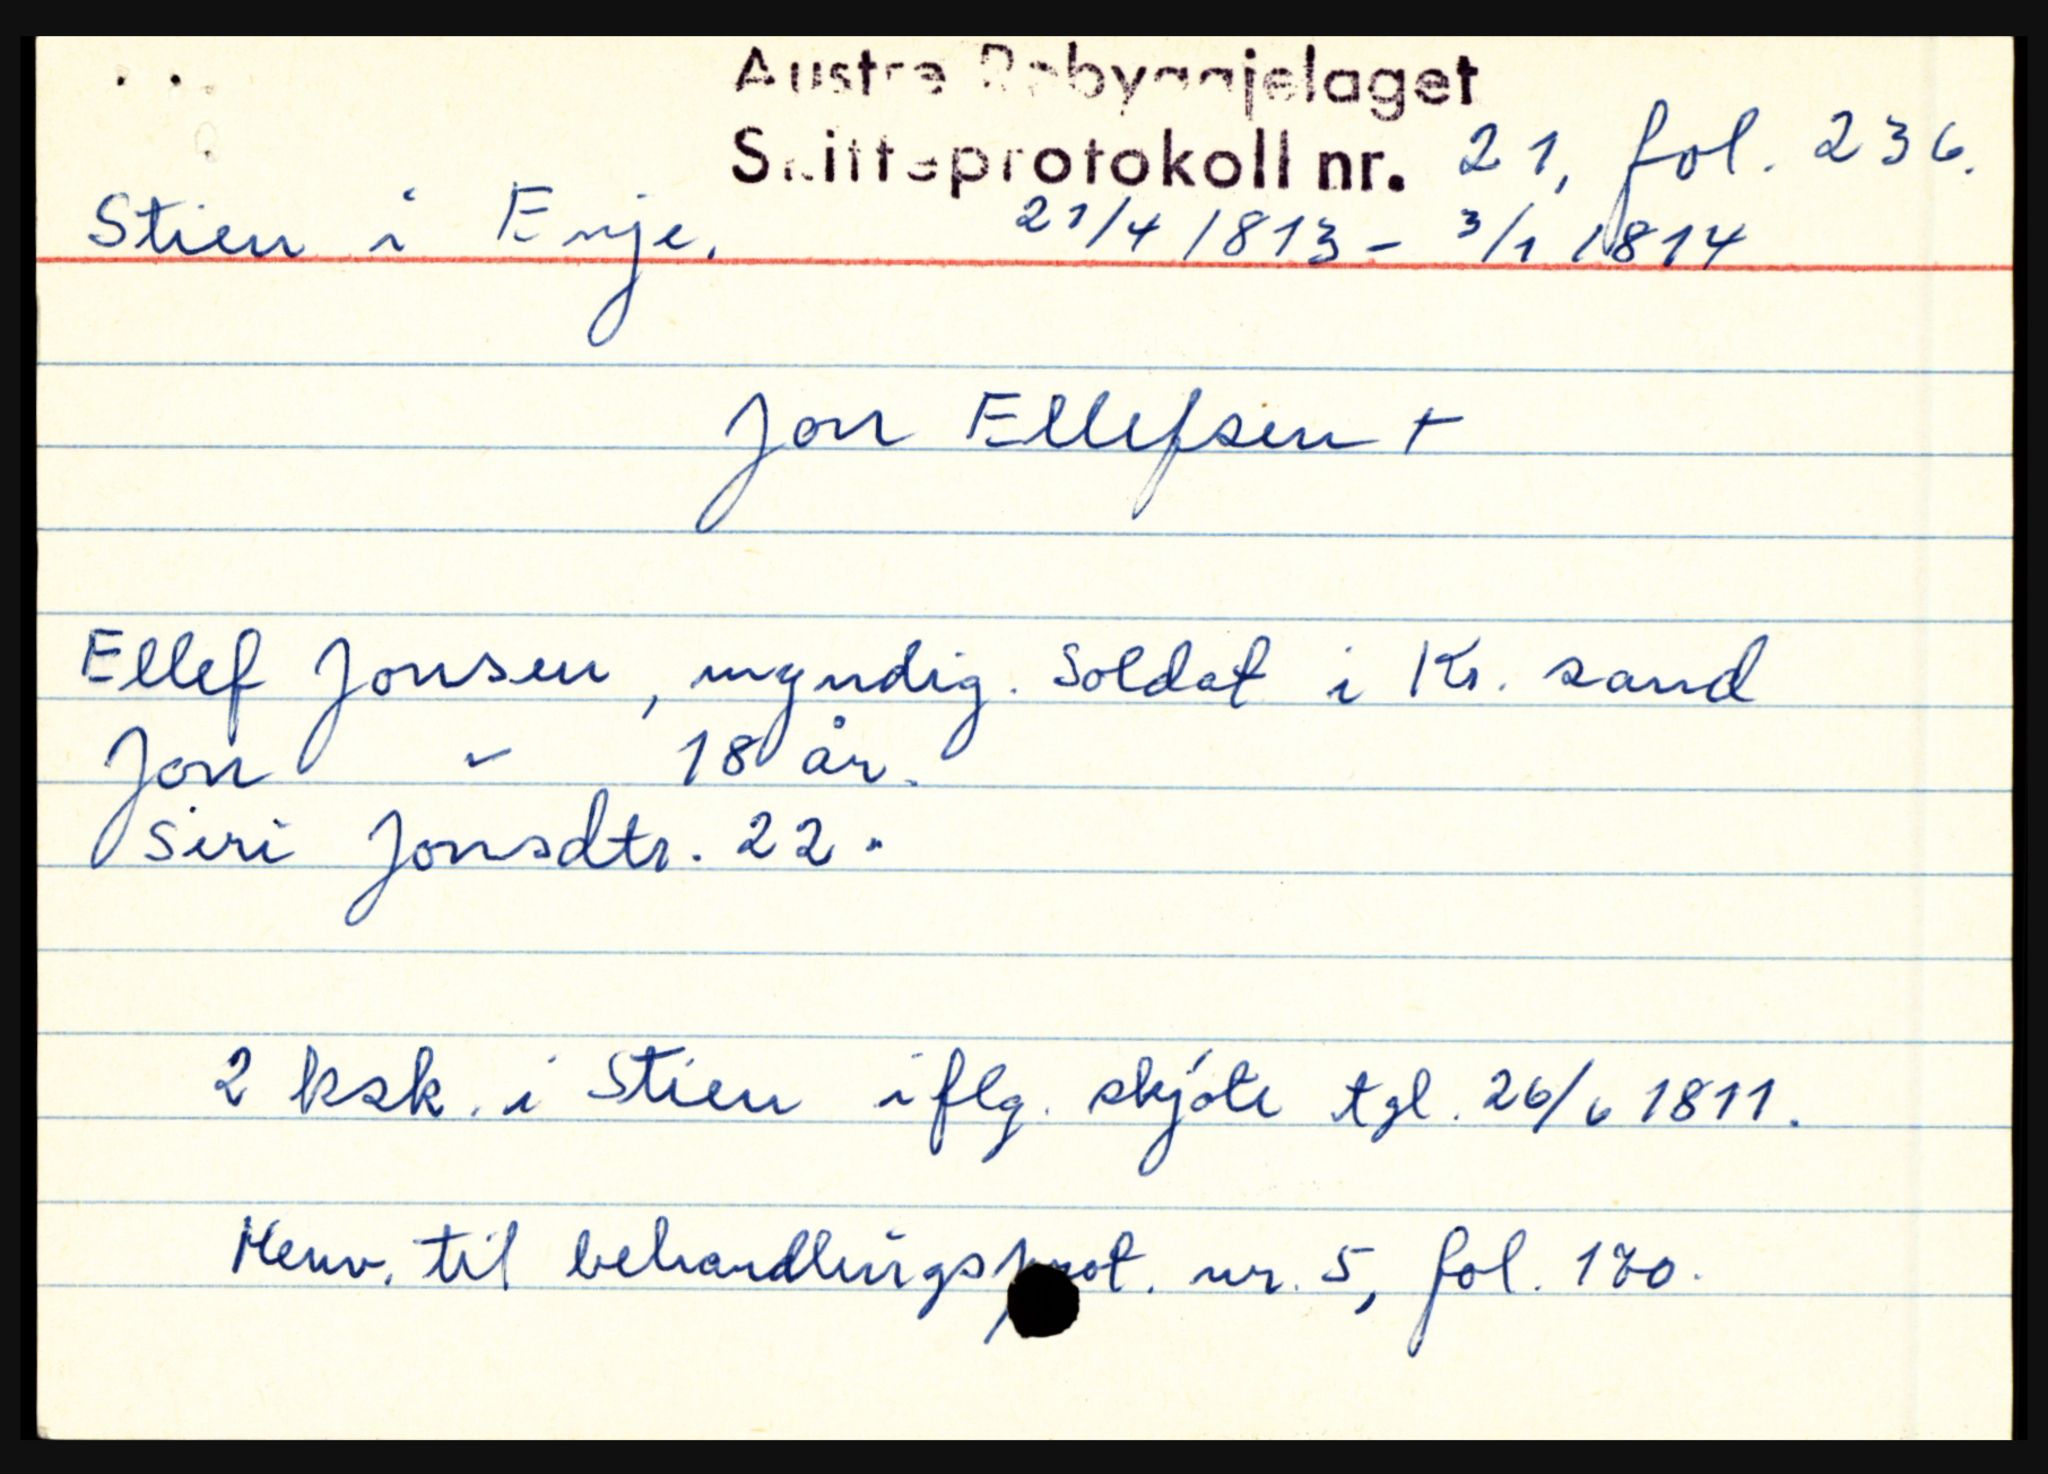 Austre Robyggjelaget
Skifteprotokoll nr. 21, fol. 236.
Stien i Evje. 21/4 1813 - 3/1 1814
Jon Ellefsen +
Ellef Jonsen, myndig. Soldat i Kr. sand
Jon " 18 år.
Siri Jonsdtr. 22 "
2 ksk. i Stien iflg. skjøte tgl. 26/6 1811.
Henv. til behandlingsprot. nr. 5, fol. 170.